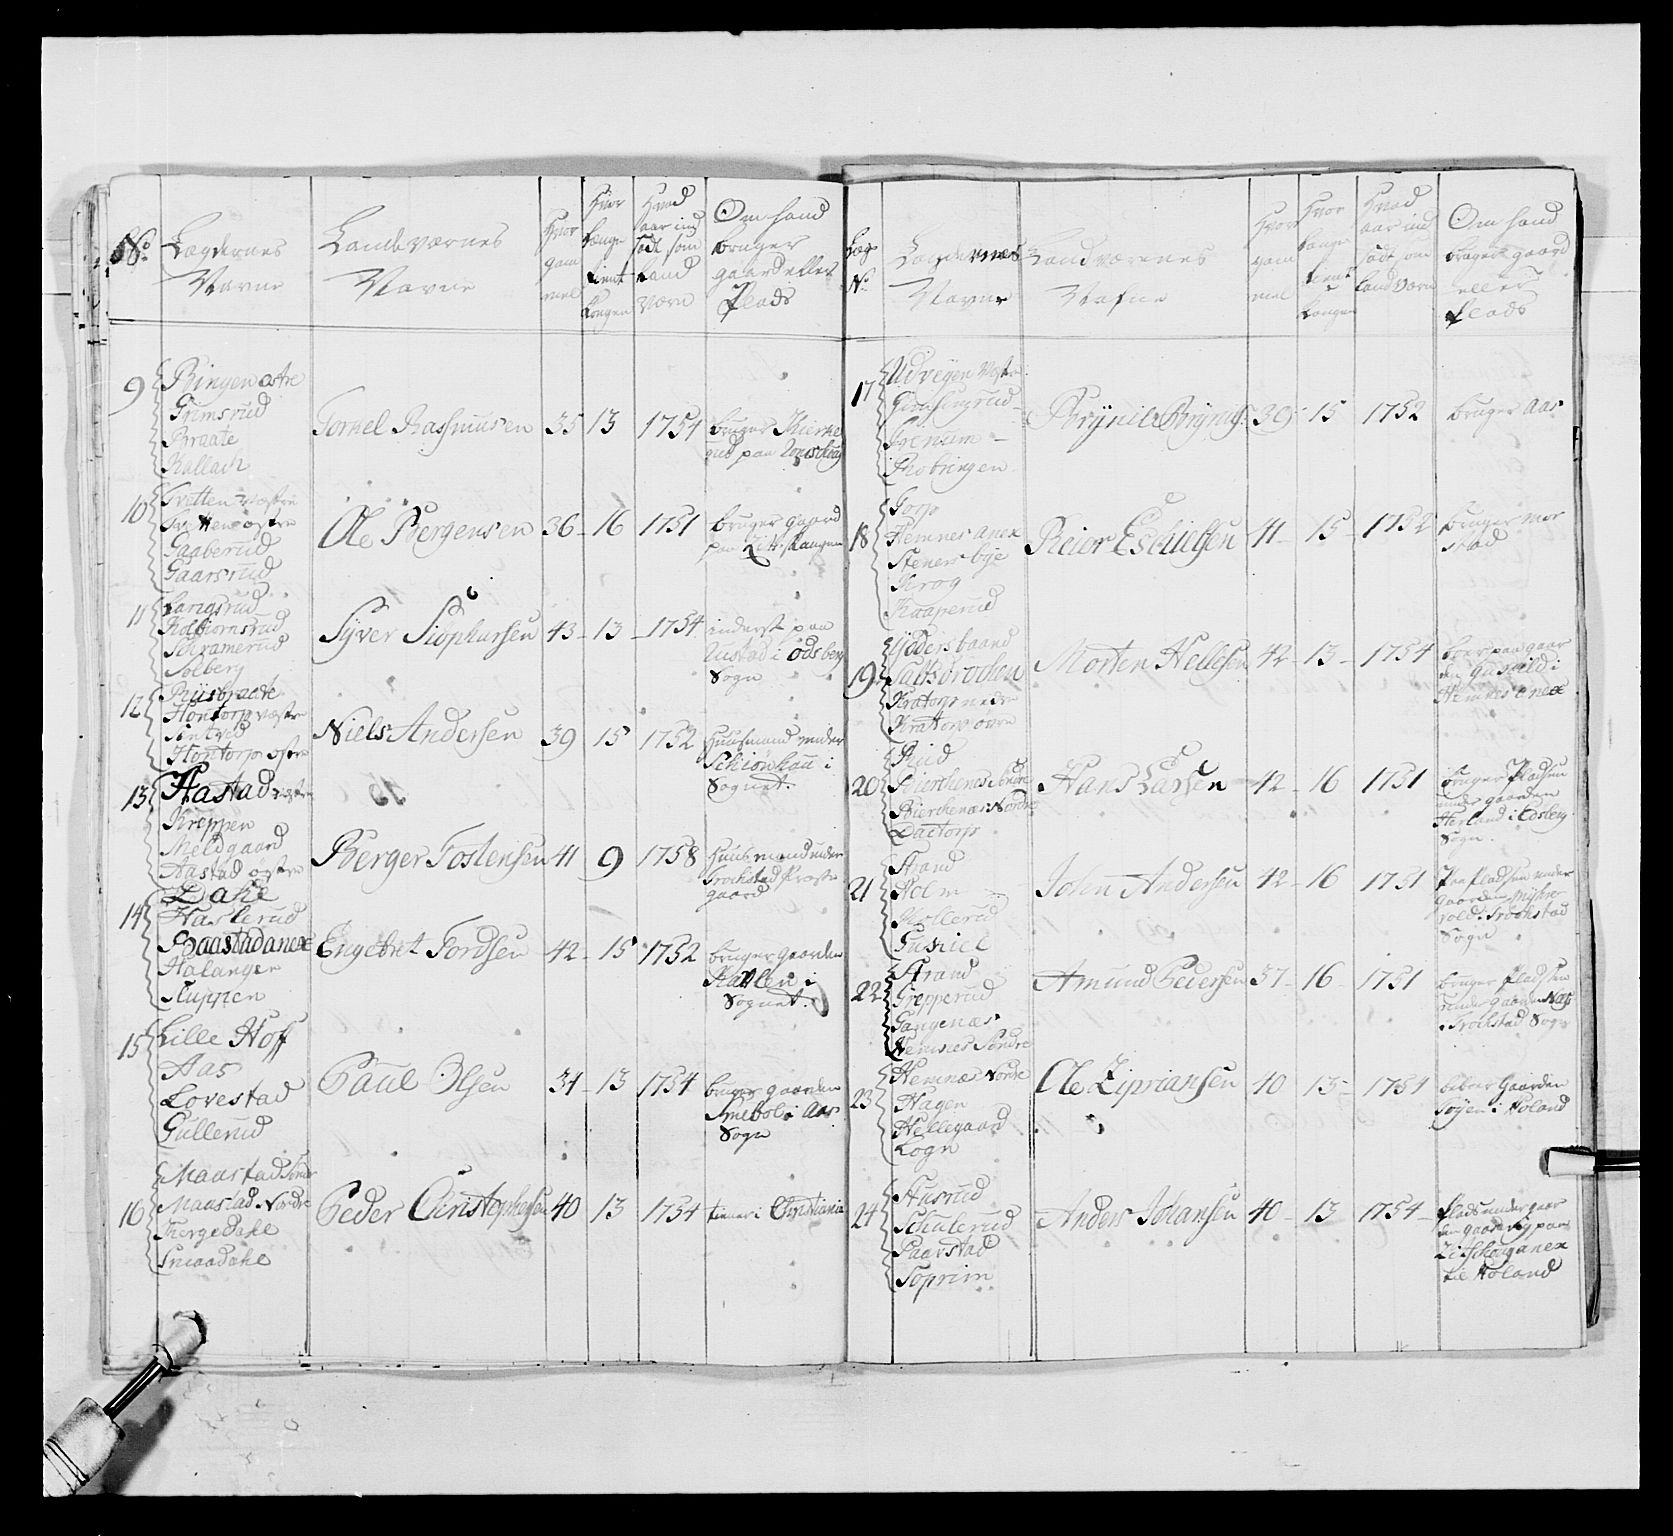 No.
Lægdernes
Navne
Landeværnes
Navne
Hvor
gam
mel
Hvor
længe
tient
Kongen
Hvad
aar ind
sadt som
Land
værn
Om hand
bruger
gaard eller
Plads
9
Bingen østre
Grimsrud
Braate
Kallach
Tornel Rasmusen 35 13 1754
bruger Kierne
paa
10
Tvetten væstre
Tvetten østre
Gaaberud
Gaarsrud
Ole Bergensen 36 - 16 1751
bruger gaard
paa
11
Langsrud
Kolbiornsrud
Skramerud
Solberg
Syver Siophursen 43 - 13 - 1754
inderst paa
Rustad i Ødsberg
Sogn
12
Riisbraate
Hontorp væstre
Hontorp østre
Niels Andersen 39 15 1752
Huusmand under
Schiønhau i
Sognet.
13
Hastad væstre
Kreppen
Meldgaard
Aastad østre
Berger Tostensen 41 9 1758
Huusmand under
Trockstad Præste
gaard
14
Dahl
Haslerud
Baastad anex
Halangen
Skuppen
Engebret Tordsen 42 - 15 1752
bruger gaarden
i
Sognet.
15
Lille Hoff
Aas
Lovestad
Gullerud
Paul Olsen 34 - 13 1754
bruger gaarden
Smebøl i Aas
Sogn
16
Maastad Søndre
Maastad Nordre
Thorgedahl
Smaadahl
Peder Christophersen 40 13 1754
tiener i Christiania
Læg
No.
Lægdernes
Navne
Landværnes
Nafne
Hvor
gam
mel
Hvor
lange
tient
Kongen
Hvad
aar ind
sadt som
Landværn
Om Hand
bruger gaard
eller
Plads
17
Udvegen Vestre
Grensingrud
Brynild Brynils: 39 15 1752
bruger Aas
18
Torp
Hemnes anex
Steners bye
Krog
Kaaperud
Reior Eschielsen 41 - 15 - 1752
bruger Mor
stad
19
Kratorp nedre
Kratorp øvre
Morten Hellesen 42 - 13 - 1754
boer paa gaar
den
Hemnes anex
20
Rud
Bierchenæs Søndre
Bierchenæs Nordre
Dactorp
Hans Larsen 42 - 16 1751
bruger Pladsen
under gaarden
Herland i Edsberg
Sogn.
21
Strand
Holm
Kollerud
Tuskiel
Johen Andersen 42 - 16 1751
Paa Pladsen under
gaarden
Trockstad
Sogn
22
Strand
Grepperud
Gangenæs
Hemnes Søndre
Amund Pedersen 37 - 16 - 1751
bruger Pladsen
under gaarden
i Trockstad Sogn
23
Hemnæs Nordre
Hagen
Hellegaard
Logn
Ole Zipriansen 40 13 - 1754
beboer Gaarden
Toyen i Holand
24
Husrud
Schulerud
Paarstad
Toprim
Anders Johansen 40 - 13 - 1754 -
Plads under gaar
den
anex
til Holand